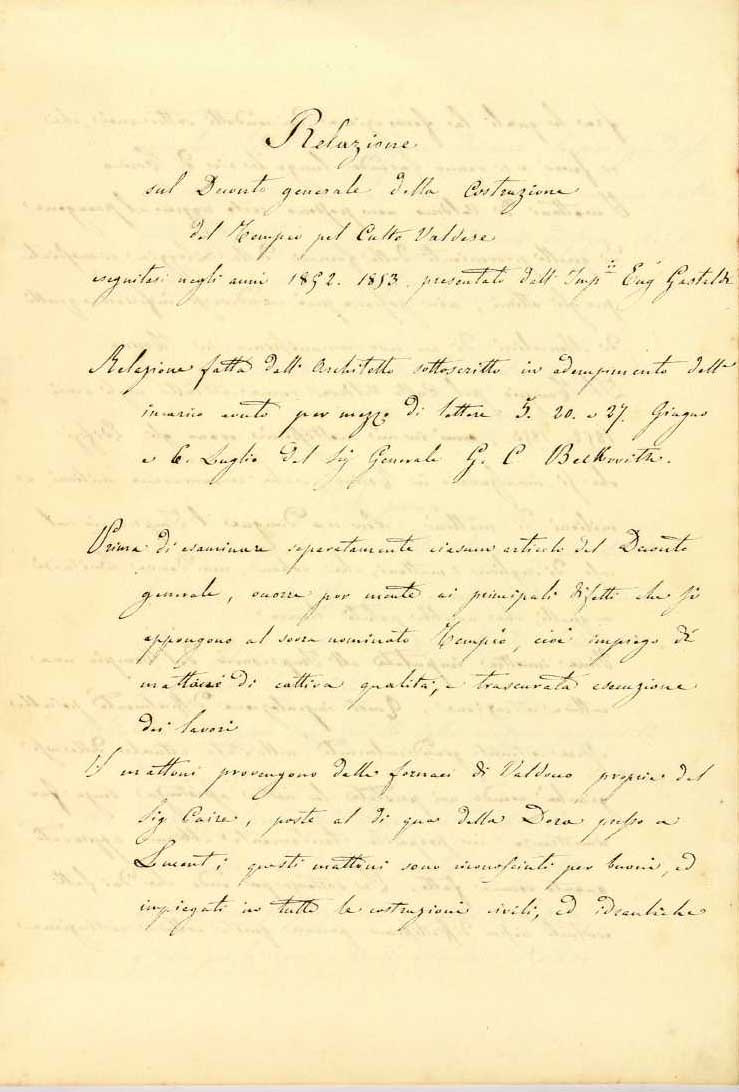 Relazione
sul Deconto generale della Costruzione
del Tempio pel Culto Valdese
eseguitasi negli anni 1852. 1853. presentato dall' Imp.rio Eug.o Gastaldi
Relazione fatta dall' Architetto sottoscritto in adempimento dell'
incarico avuto per mezzo di lettere 5. 20. e 27. Giugno
e 6. Luglio del Sig Generale G. C Beckovith.
Prima di esaminare separatamente ciascun articolo del Deconto
generale, occorre por mente ai principali difetti che si
appongono al sovra nominato Tempio, cioè impiego di
mattoni di cattiva qualità, e trascurata esecuzione
dei lavori
I mattoni provengono dalle fornaci di Valdocco proprie del
Sig Caire, poste al di qua della Dora presso a
Lucent; questi mattoni sono riconosciuti per buoni, ed
impiegati in tutte le costruzioni civili, ed idrauliche